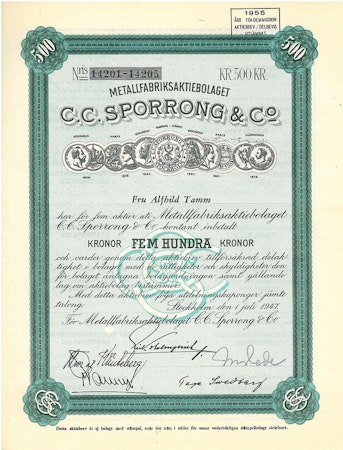 1955
ÅRS FONDEMISSION
AKTIEBREV / DELBEVIS
UTLÄMNAT
500
500
Nris 14201-14205
KR. 500 KR.
METALLFABRIKSAKTIEBOLAGET
C.C. SPORRONG & Co.
Fru Alfhild Tamm
har för fem aktier uti Metallfabriksaktiebolaget
C.C. Sporrong & Co kontant inbetalt
KRONOR FEM HUNDRA KRONOR
och varder genom detta aktiebrev tillförsäkrad delak-
tighet i bolaget med de rättigheter och skyldigheter, den
för bolaget antagna bolagsordningen samt gällande
lag om aktiebolag bestämmer.
Med detta aktiebrev följa utdelningskuponger jämte
talong.
Stockholm den 1 juli 1947.
För Metallfabriksaktiebolaget C.C. Sporrong & Co
Tage Swedberg
500
500
Detta aktiebrev är ej belagt med stämpel, enär det